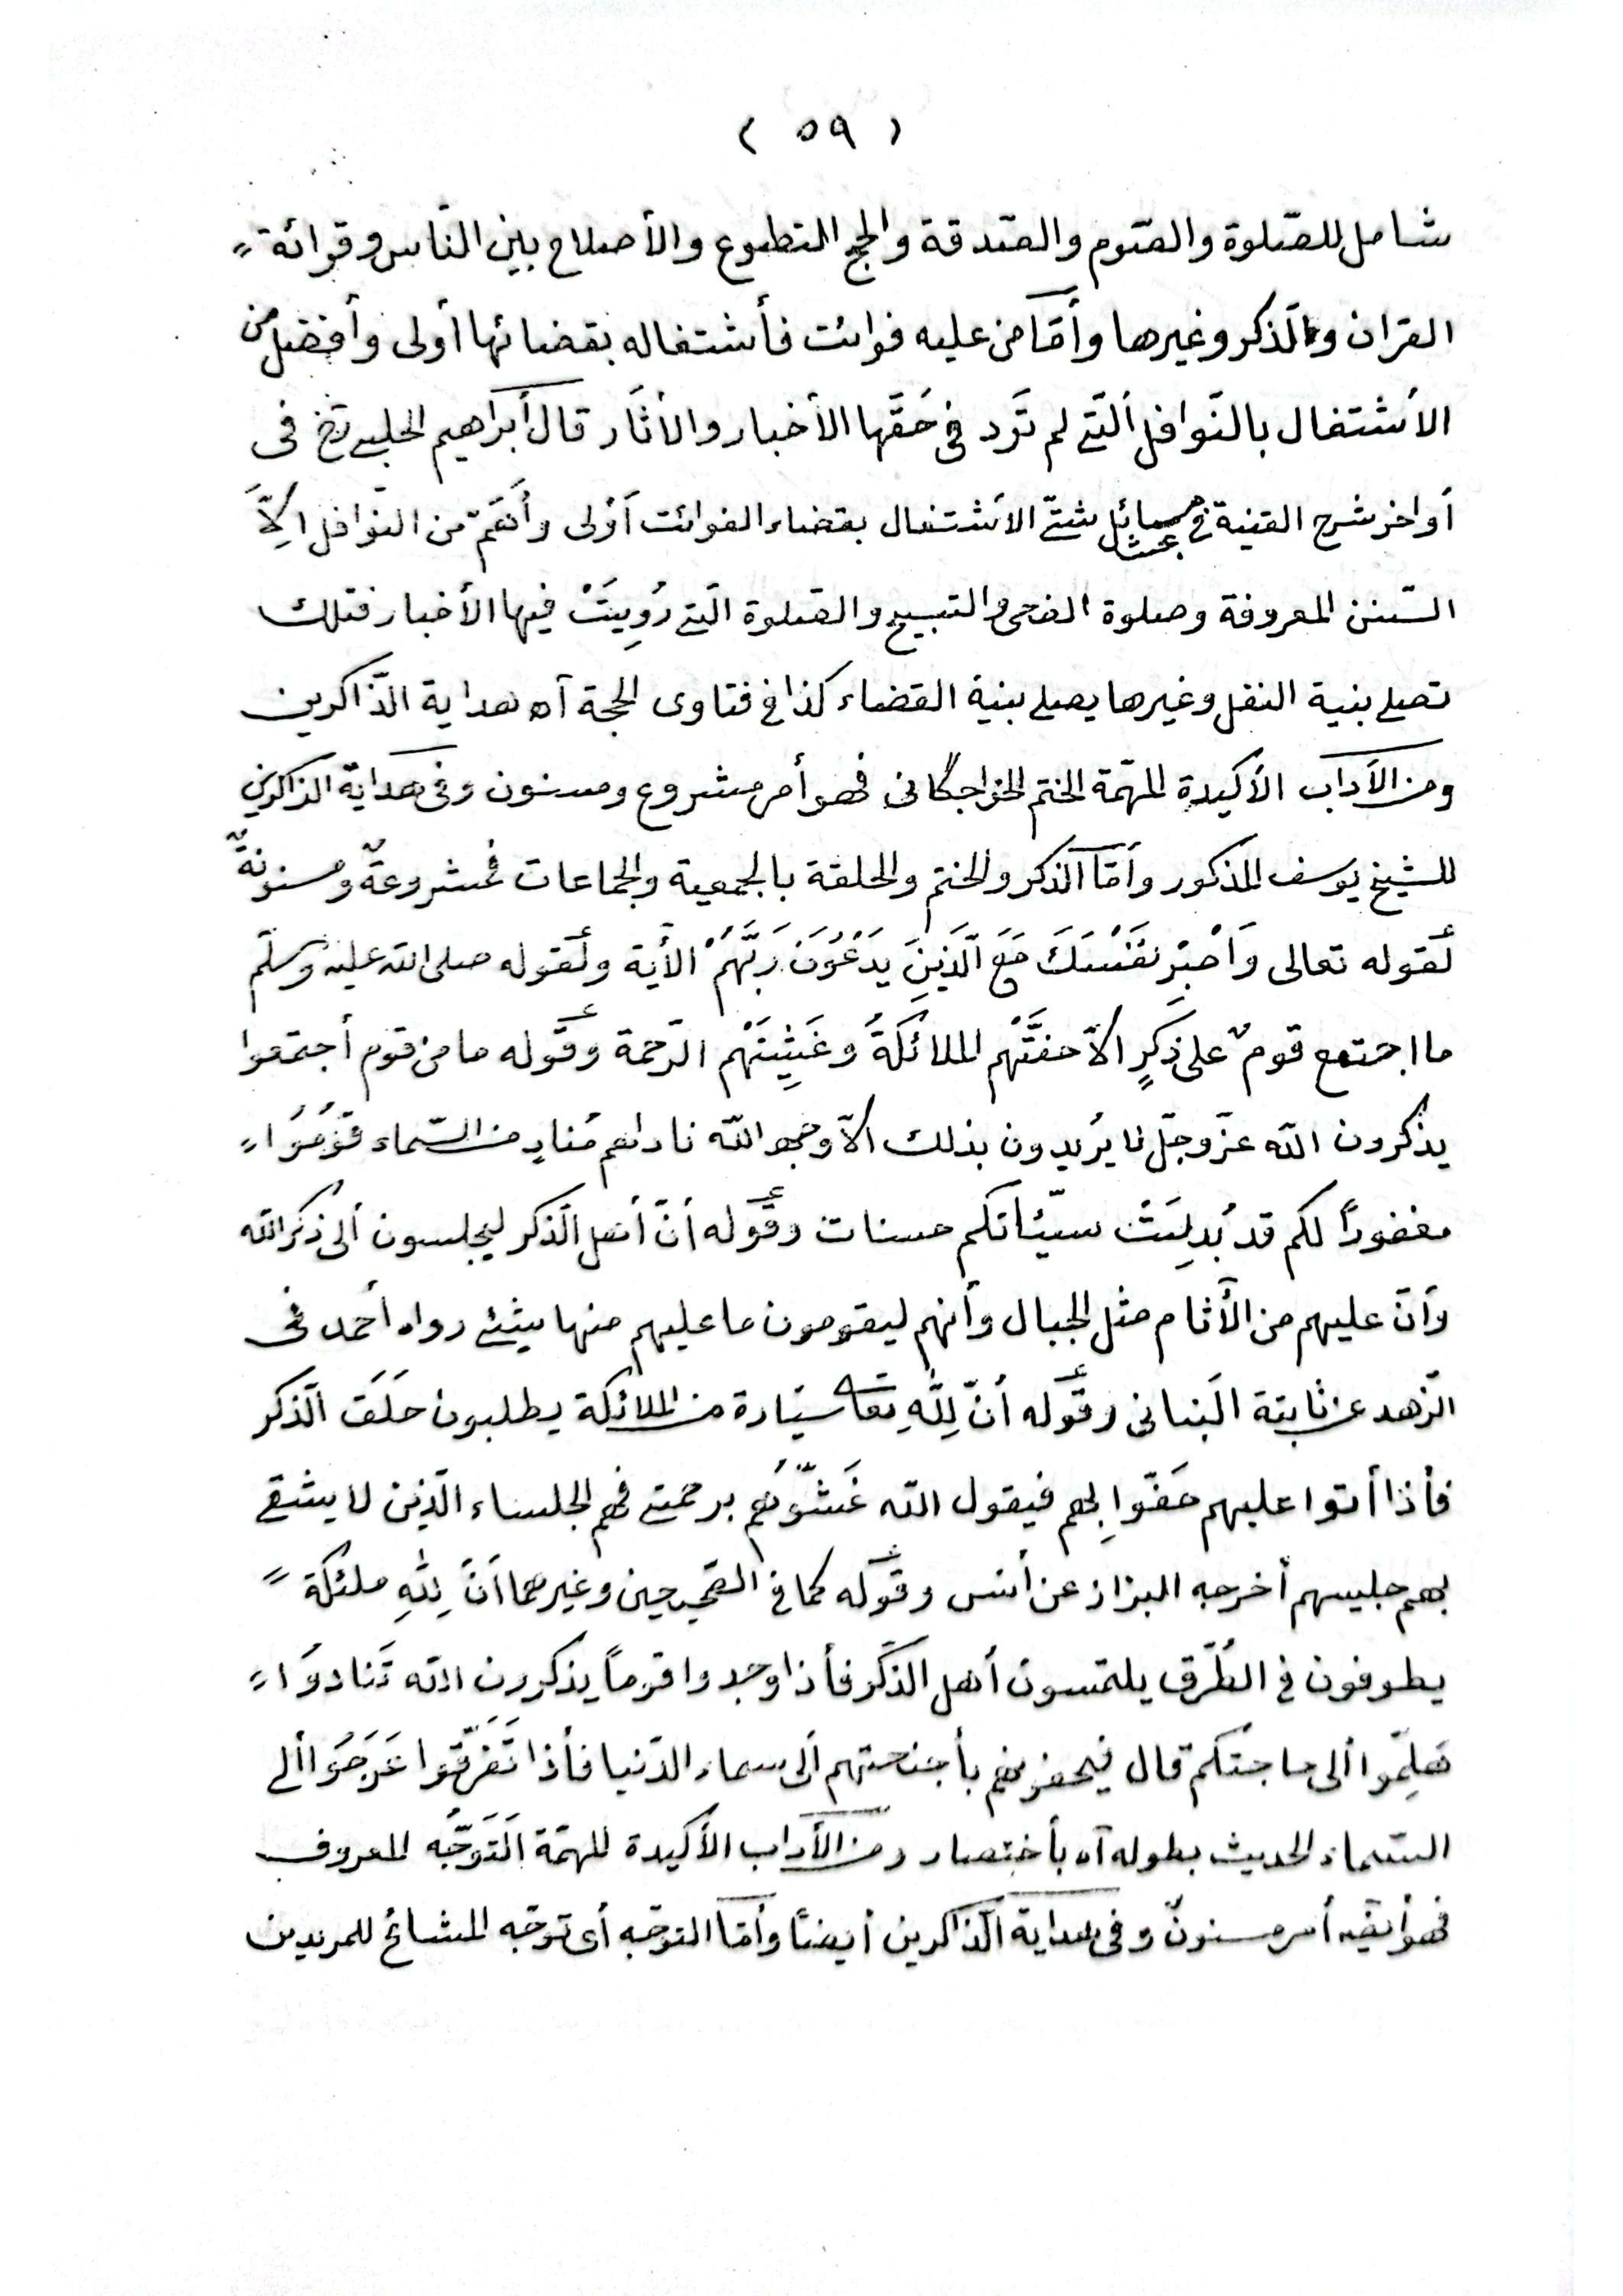 ( ٥٩ )
شامل للصّلوة والصّوم والصّدقة والحج التطوع والأصلاح بين النّاس وقرائة
القران والذّكر وغيرها وأمّا من عليه فوائت فأشتغاله بقضائها أولى وأفضل من
الأشتغال بالنّوافل ألّتى لم تَرد فى حَقّها الأخبار والأثار قال أبراهيم الحلبى فى
أواخر شرح القنية فى مسائل شتّى الأشتغال بقضاء الفوائت أولى وأهَمّ من النّوافل الِاّ
السّنن المعروفة وصلوة الضحى والتسبيح والصّلوة الّتى رُوِيَتْ فيها الأخبار فتلك
تصلى بنية النفل وغيرها يصلى بنية القضاء كذا فى فتاوى الحجة آه هداية الذّاكرين
ومن الآداب الأكيدة المهمّة الختم الخواجگانى فهو أمر مشروع ومسنون وفى هداية الذاكرين
للشيخ يوسف المذكور وأمّا الذكر والختم والحلقة بالجمعية والجماعات فمشروعةٌ ومسنونةٌ
لقوله تعالى وَاصْبِرْ نَفْسَكَ مَعَ الَّذِينَ يَدْعُونَ رَبَّهُمْ الأية ولقوله صلى الله عليه وسلّم
ما اجتمع قومٌ على ذكرٍ الاّ حفَّتْهم الملائكةُ وغَشِيَتْهم الرّحمة وقوله ما من قوم أجتمعوا
يذكرون الله عزّ وجلّ لا يُريدون بذلك الاّ وجه الله ناداهم مُنادٍ من السّماء قُومُوا
مغفورًا لكم قد بُدلِتَ سيّئاتكم حسنات وقوله أنّ أهل الذّكر ليجلسون ألى ذكر الله
وأنّ عليهم من الأثام مثل الجبال وأنهم ليقومون ما عليهم منها شئ رواه أحمد فى
الزّهد عن ثابتة البنانى وقوله أنّ لِلّهِ تعا سيّارة من الملائكة يطلبون حلَقَ الذّكر
فأذا أتوا عليهم حَفّوا بِهم فيقول الله غَشُّوهُم برحمتى فهم الجلساء الّذين لا يشقى
بهم جليسهم أخرجه البزاز عن أنس وقوله كما فى الصّحيحين وغيرهما أنّ لِلهِ ملئكة
يطوفون فى الطُرُق يلتمسون أهل الذّكر فأذا وجدوا قومًا يذكرون الله تَنادوا
هَلِمّوا ألى حاجتكم قال فيحفونهم بأجنحتهم ألى سماء الدّنيا فأذا تَفَرَّقوا عَرَجُوا ألى
السّماء الحديث بطوله آه بأختصار ومن الآداب الأكيدة المهمّة التَوَجُّه المعروف
فهو أيضًا أمر مسنونٌ وفى هداية الذّاكرين أيضًا وأمّا التوجّه أى توجّه المشائخ للمريدين